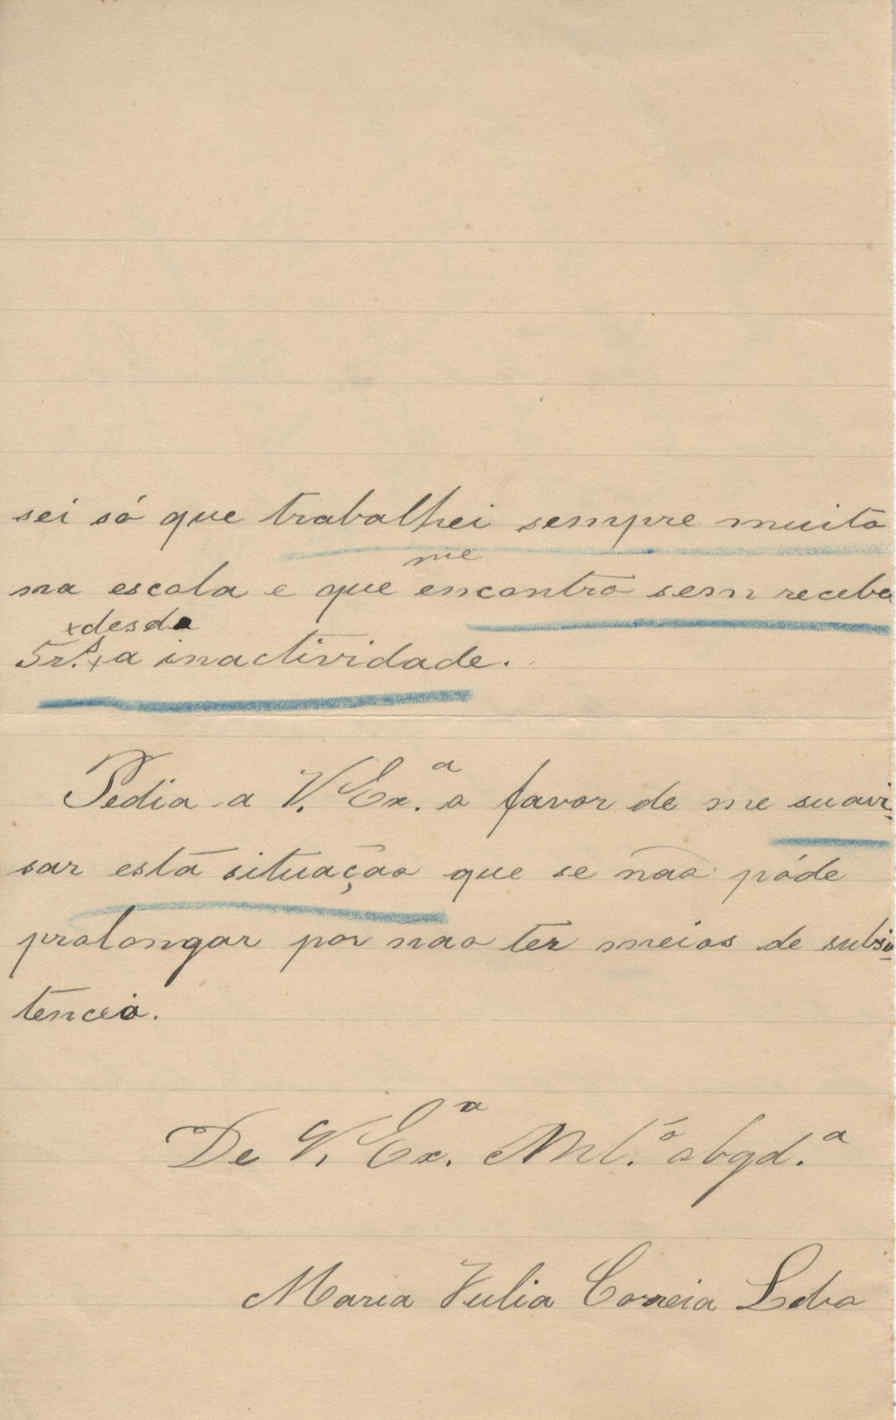 sei só que trabalhei sempre muito
me
na escola e que encontro sem recebe
x desde
5rs. x a inactividade.
Pedia a V. Ex.ª o favor de me suavi-
sar esta situação que se não póde
prolongar por nao ter meios de subsis-
tencia.
De V. Ex.ª Mt.º obgd.ª
Maria Julia Correia Lobo